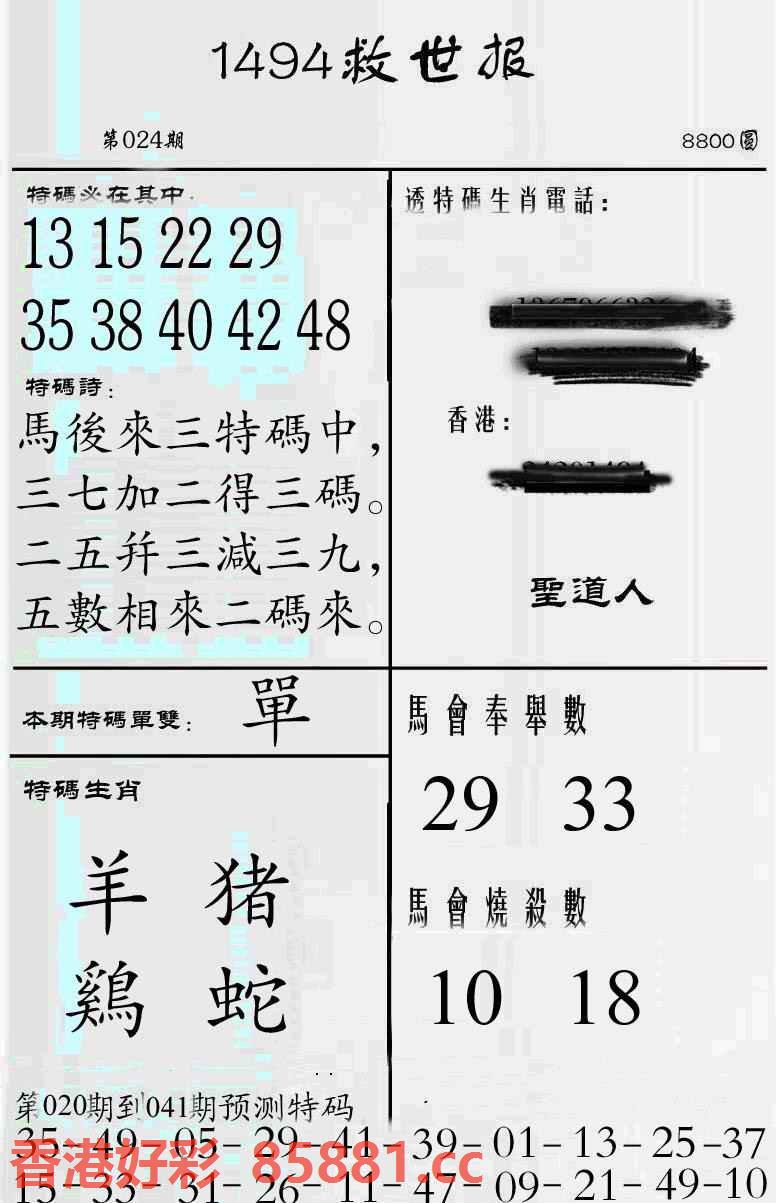 1494救世报
第024期
8800圓
特碼必在其中:
13 15 22 29
35 38 40 42 48
特碼詩:
馬後來三特碼中,
三七加二得三碼。
二五幷三減三九,
五數相來二碼來。
透特碼生肖電話:
香港:
聖道人
本期特碼單雙: 單
特碼生肖
羊 猪
鷄 蛇
馬會奉舉數
29 33
馬會燒殺數
10 18
第020期到041期预测特码
35-49-05-29-41-39-01-13-25-37
15-33-31-26-11-47-09-21-49-10
香港好彩 85881.cc